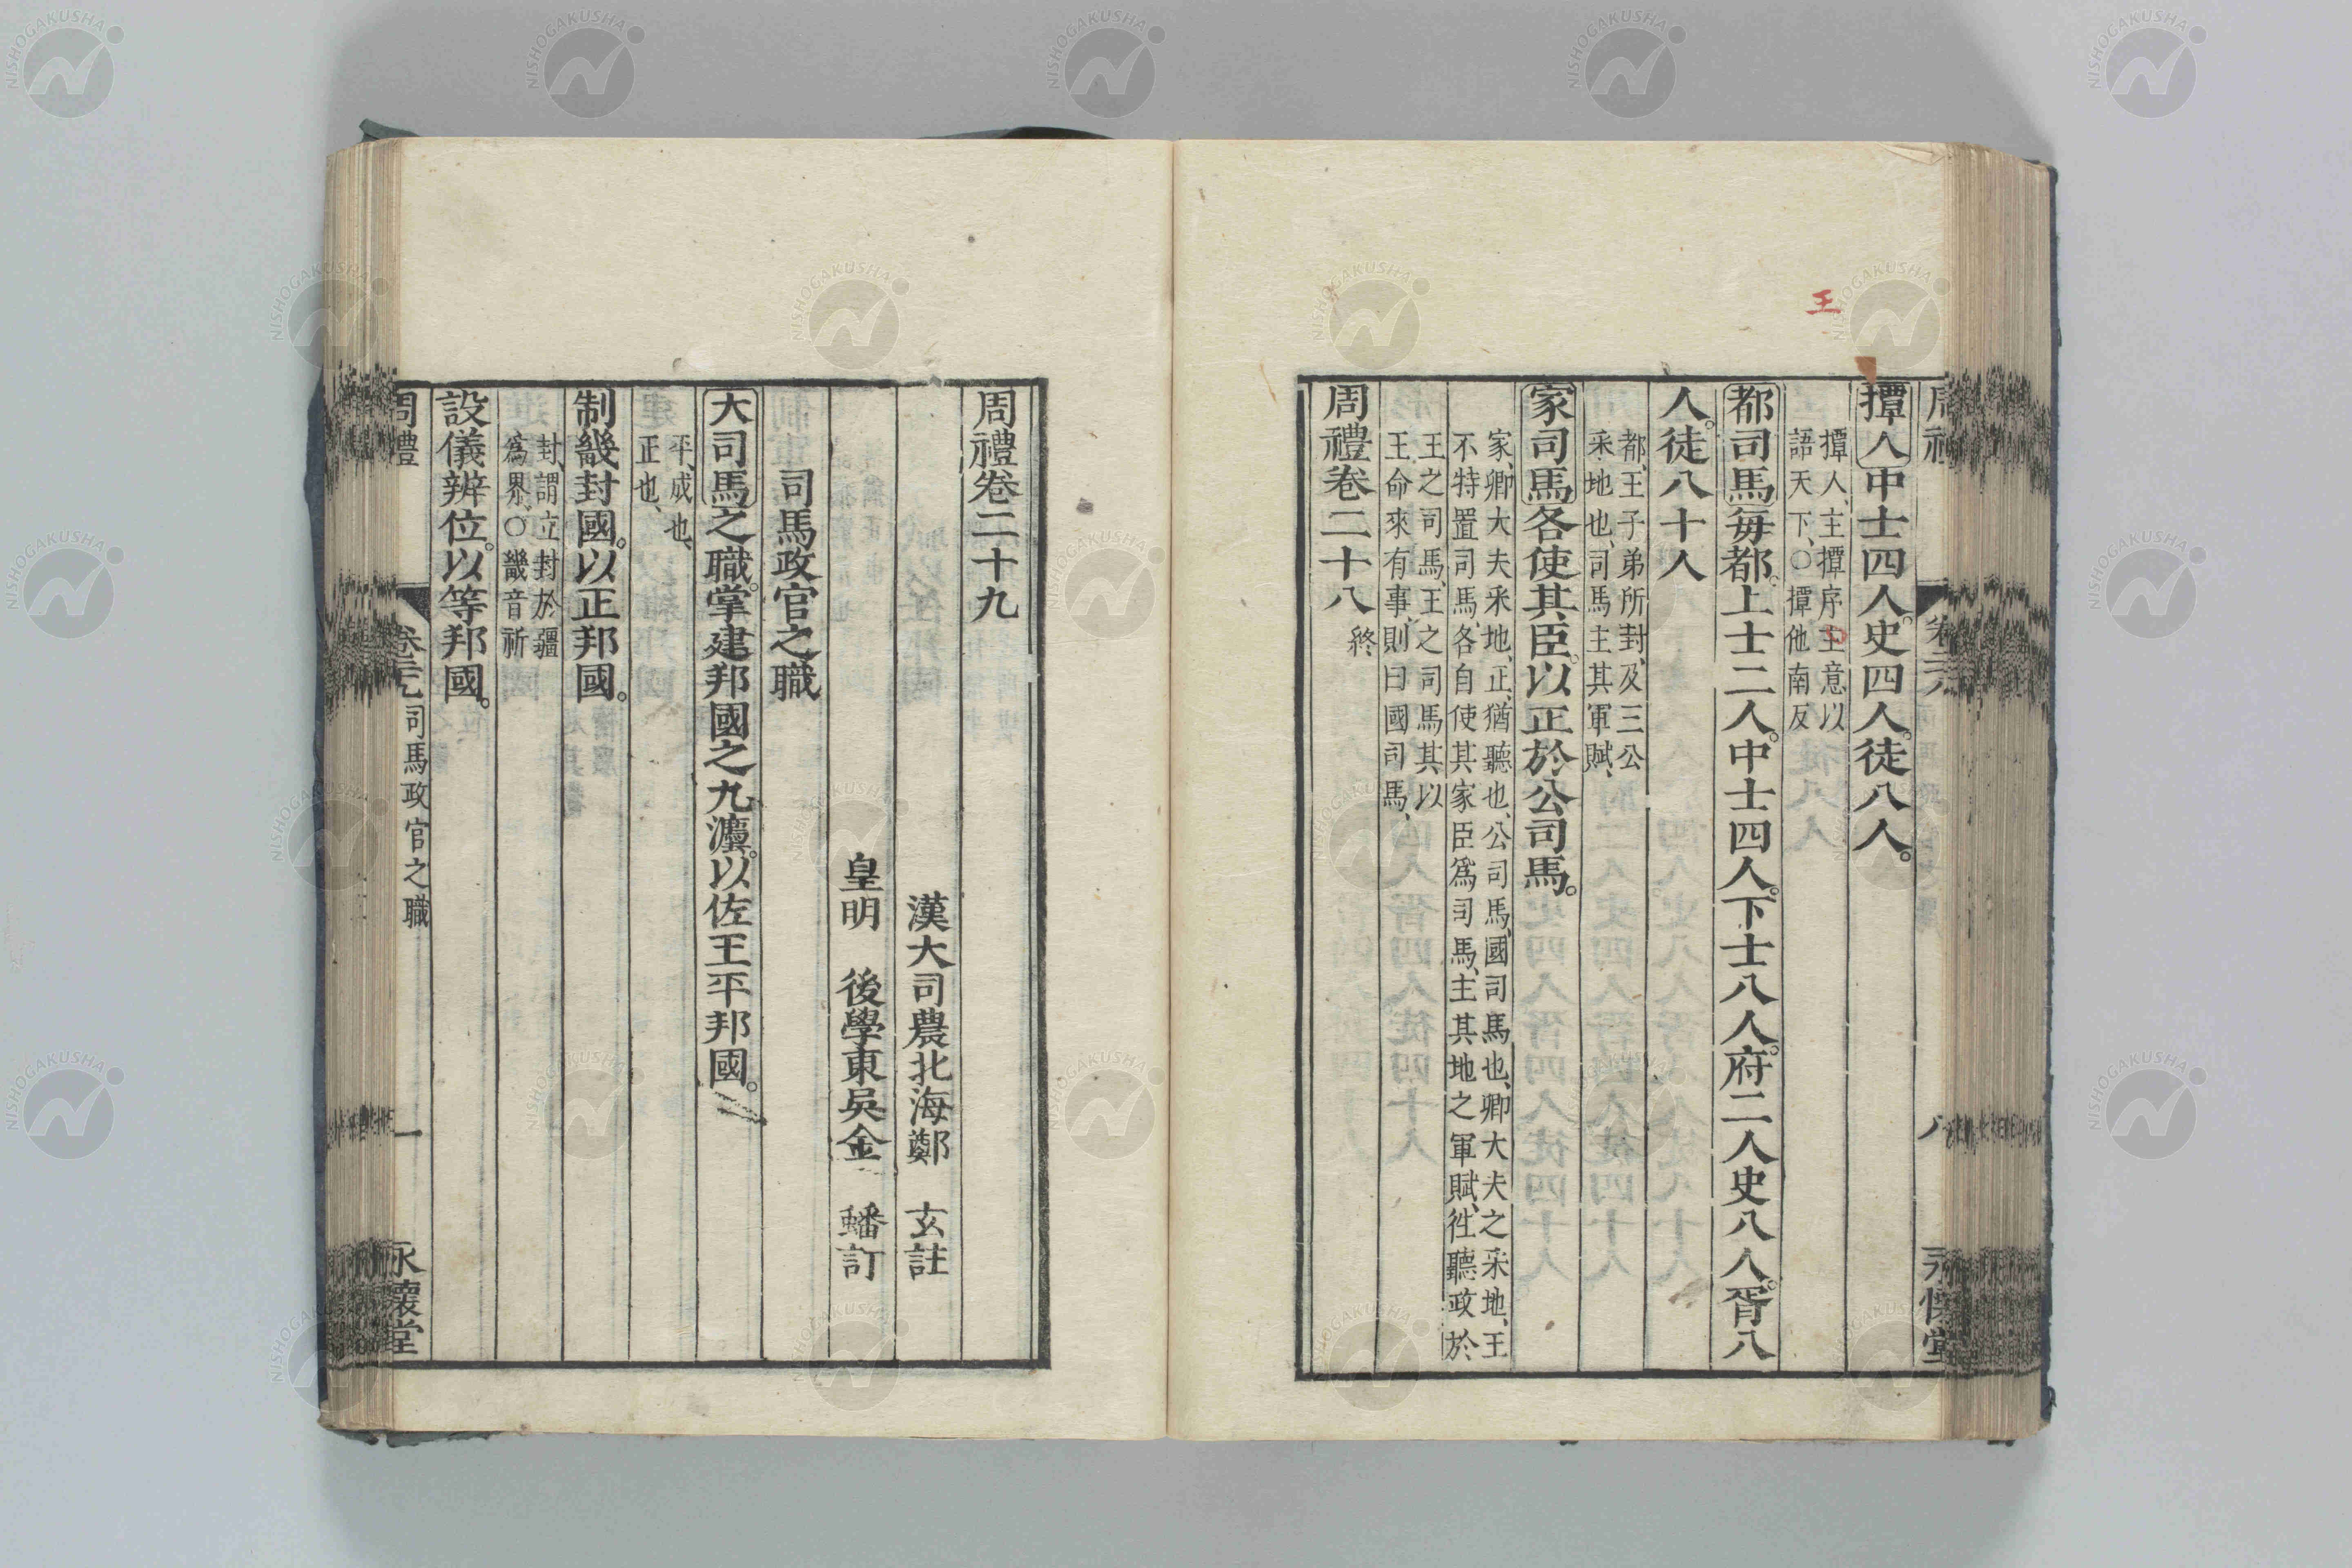 王
撢人中士四人。史四人。徒八人。
撢人、主撢序主意、以
語天下、○撢他南反
都司馬每都。上士二人。中士四人。下士八人。府二人史八人。胥八
人。徒八十人
都、王子弟所封、及三公
采地也、司馬主其軍賦、
家司馬各使其臣。以正於公司馬。
家、卿大夫采地、正、猶聽也、公司馬、國司馬也、卿大夫之采地、王
不特置司馬、各自使其家臣爲司馬、主其地之軍賦、徃聽政於
王之司馬、王之司馬其以
王命來有事、則曰國司馬、
周禮卷二十八 終
周禮卷二十九
漢大司農北海鄭 玄註
皇明 後學東吳金 蟠訂
司馬政官之職
大司馬之職。掌建邦國之九灋。以佐王平邦國。
平、成也、
正也、
制畿封國。以正邦國。
封、謂立封於疆
爲界、○畿音祈
設儀辨位。以等邦國。
周禮 卷二九 司馬政官之職 一 永懷堂
NISHOGAKUSHA